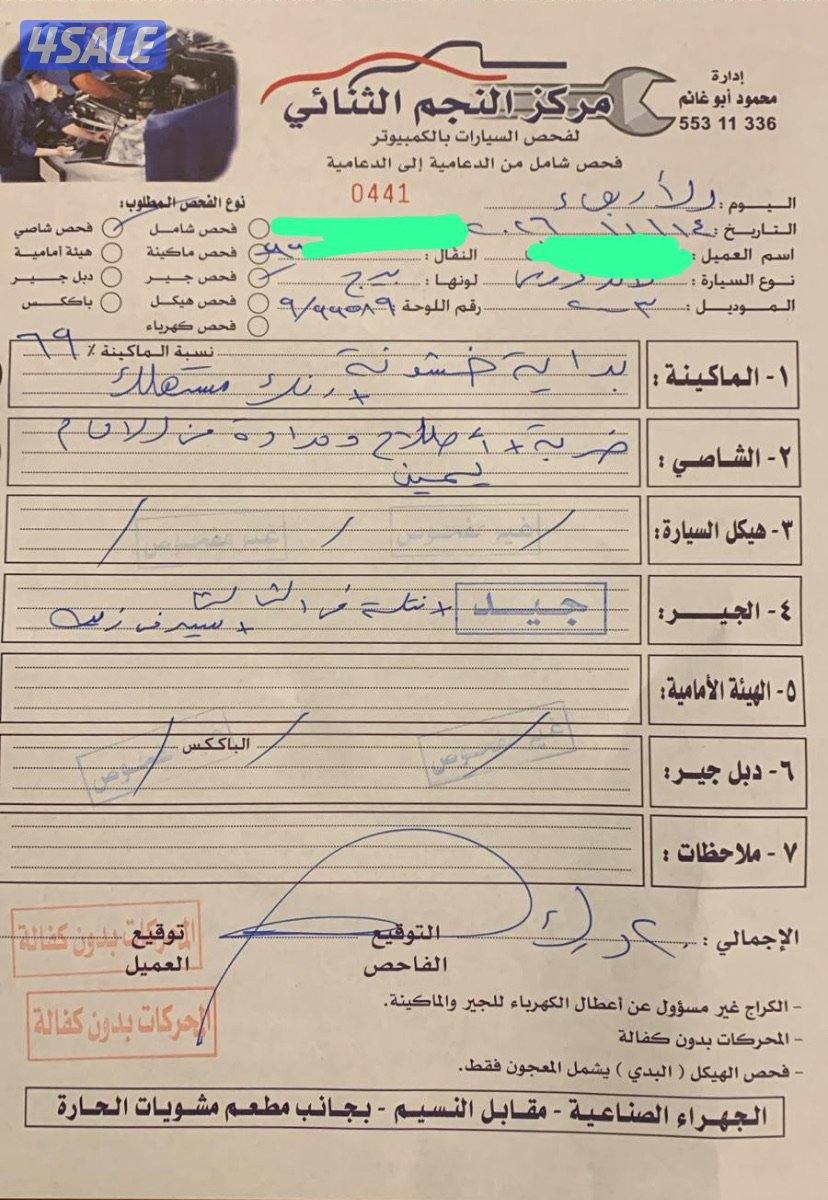 4SALE
إدارة
محمود أبو غانم
553 11 336
مركز النجم الثنائي
لفحص السيارات بالكمبيوتر
فحص شامل من الدعامية إلى الدعامية
0441
اليوم : الأربعاء
التاريخ : ١٤ / ١ / ٢٠٢٦
اسم العميل :
النقال :
نوع السيارة :
لونها : بيج
الموديل : ٢٠٠٣
رقم اللوحة : ٩/٩٩٥٨٩
نوع الفحص المطلوب :
فحص شامل
فحص شاصي
فحص ماكينة
هيئة أمامية
فحص جير
دبل جير
فحص هيكل
باككس
فحص كهرباء
١- الماكينة :
نسبة الماكينة ٪ ٦٩
بداية خشونة
+ رنك مستهلك
٢- الشاصي :
ضربة + أصلاح من الامام
يمين
٣- هيكل السيارة :
غير مفحوص
غير مفحوص
٤- الجيــــر :
جيــد + نتلة في الثالث
+ سيرف زيت
٥- الهيئة الأمامية :
٦- دبل جير :
الباككس
غير مفحوص
غير مفحوص
٧- ملاحظات :
الإجمالي :
التوقيع
الفاحص
توقيع
العميل
المحركات بدون كفالة
المحركات بدون كفالة
- الكراج غير مسؤول عن أعطال الكهرباء للجير والماكينة.
- المحركات بدون كفالة
- فحص الهيكل ( البدي ) يشمل المعجون فقط.
الجهراء الصناعية - مقابل النسيم - بجانب مطعم مشويات الحارة